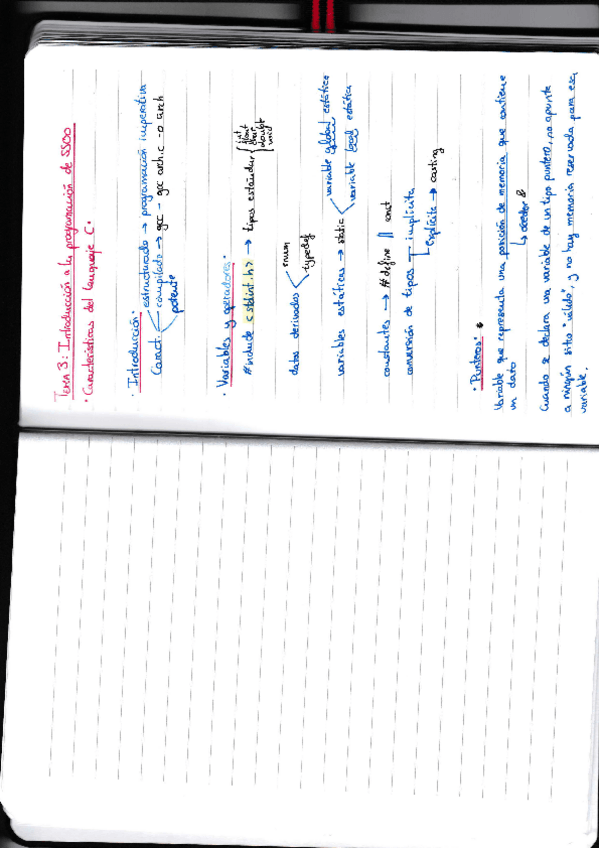 Tema 3: Introducción a la programación de SSOO
· Características del lenguaje C·
· Introducción·
Caract. estructurado → programación imperativa
compilado → gcc - gcc arch.c -o arch
potente
· Variables y operadores·
#include <stdint.h> → tipos estandar { int float char double void
datos derivados enum
typedef
variables estáticas → static variable global estática
variable local estática
constantes → #define // const
conversión de tipos implícita
explícita → casting
· Punteros· *
Variable que representa una posición de memoria que contiene
un dato
↳ &
Cuando se declara una variable de un tipo puntero, no apunta
a ningún sitio "válido", y no hay memoria reservada para esa
variable.